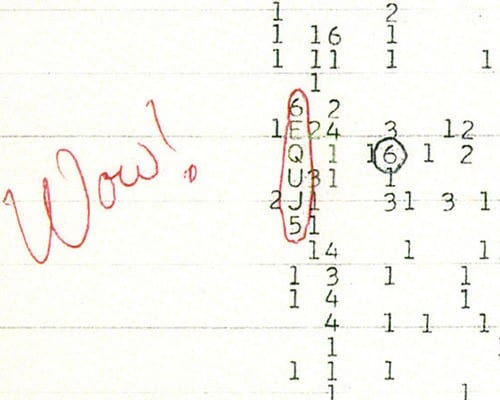 1 2
1 16 1
1 11 1 1
1
6 2
1 E 24 3 12
Q 1 1 6 1 2
U 31 1
2 J 1 31 3 1
5 1
14 1 1
1 3 1 1
1 4 1
4 1 1 1
1
1 1 1
1 1
Wow!